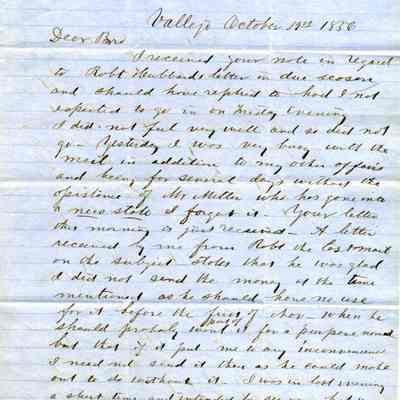 Vallejo October 19th 1856
Dear Bro
I received your note in regard
to Robt Hubbards letter in due season
and should have replied to had I not
expected to go in on Friday evening
I did not feel very well and so did not
go - Yesterday I was very busy with the
mail in addition to my other affairs
and being for several days without the
assistance of Mr Miller who has gone onto
a new state I forgot it - Your letter
this morning is just received - A letter
received by me from Robt the last mail
on the subject states that he was glad
I did not send the money at the time
mentioned as he should have no use
for it before the first of Nov - when he
should probaly want part of it for a purpose named
but that if it put me to any inconvenience
I need not send it then as he could make
out to do without it - I was in last evening
a short time and intended to